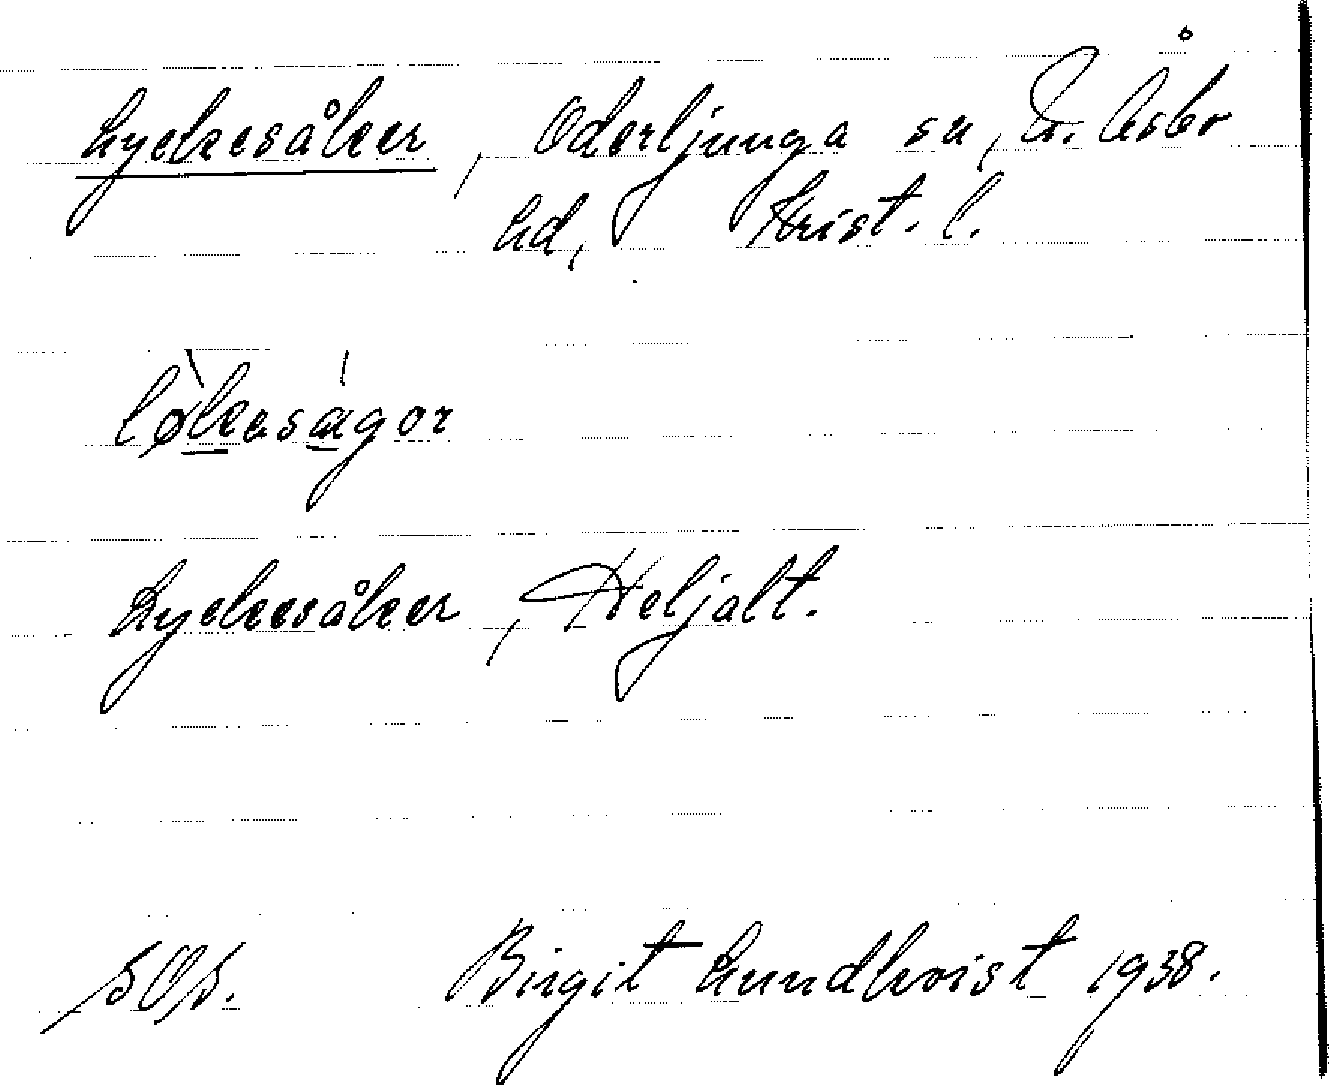 Lyckesåker, Oderljunga sn, N. Åsbo
hd, Krist. l.
løkasågor
Lyckesåker, Heljalt.
SOS. Birgit Lundkvist 1938.